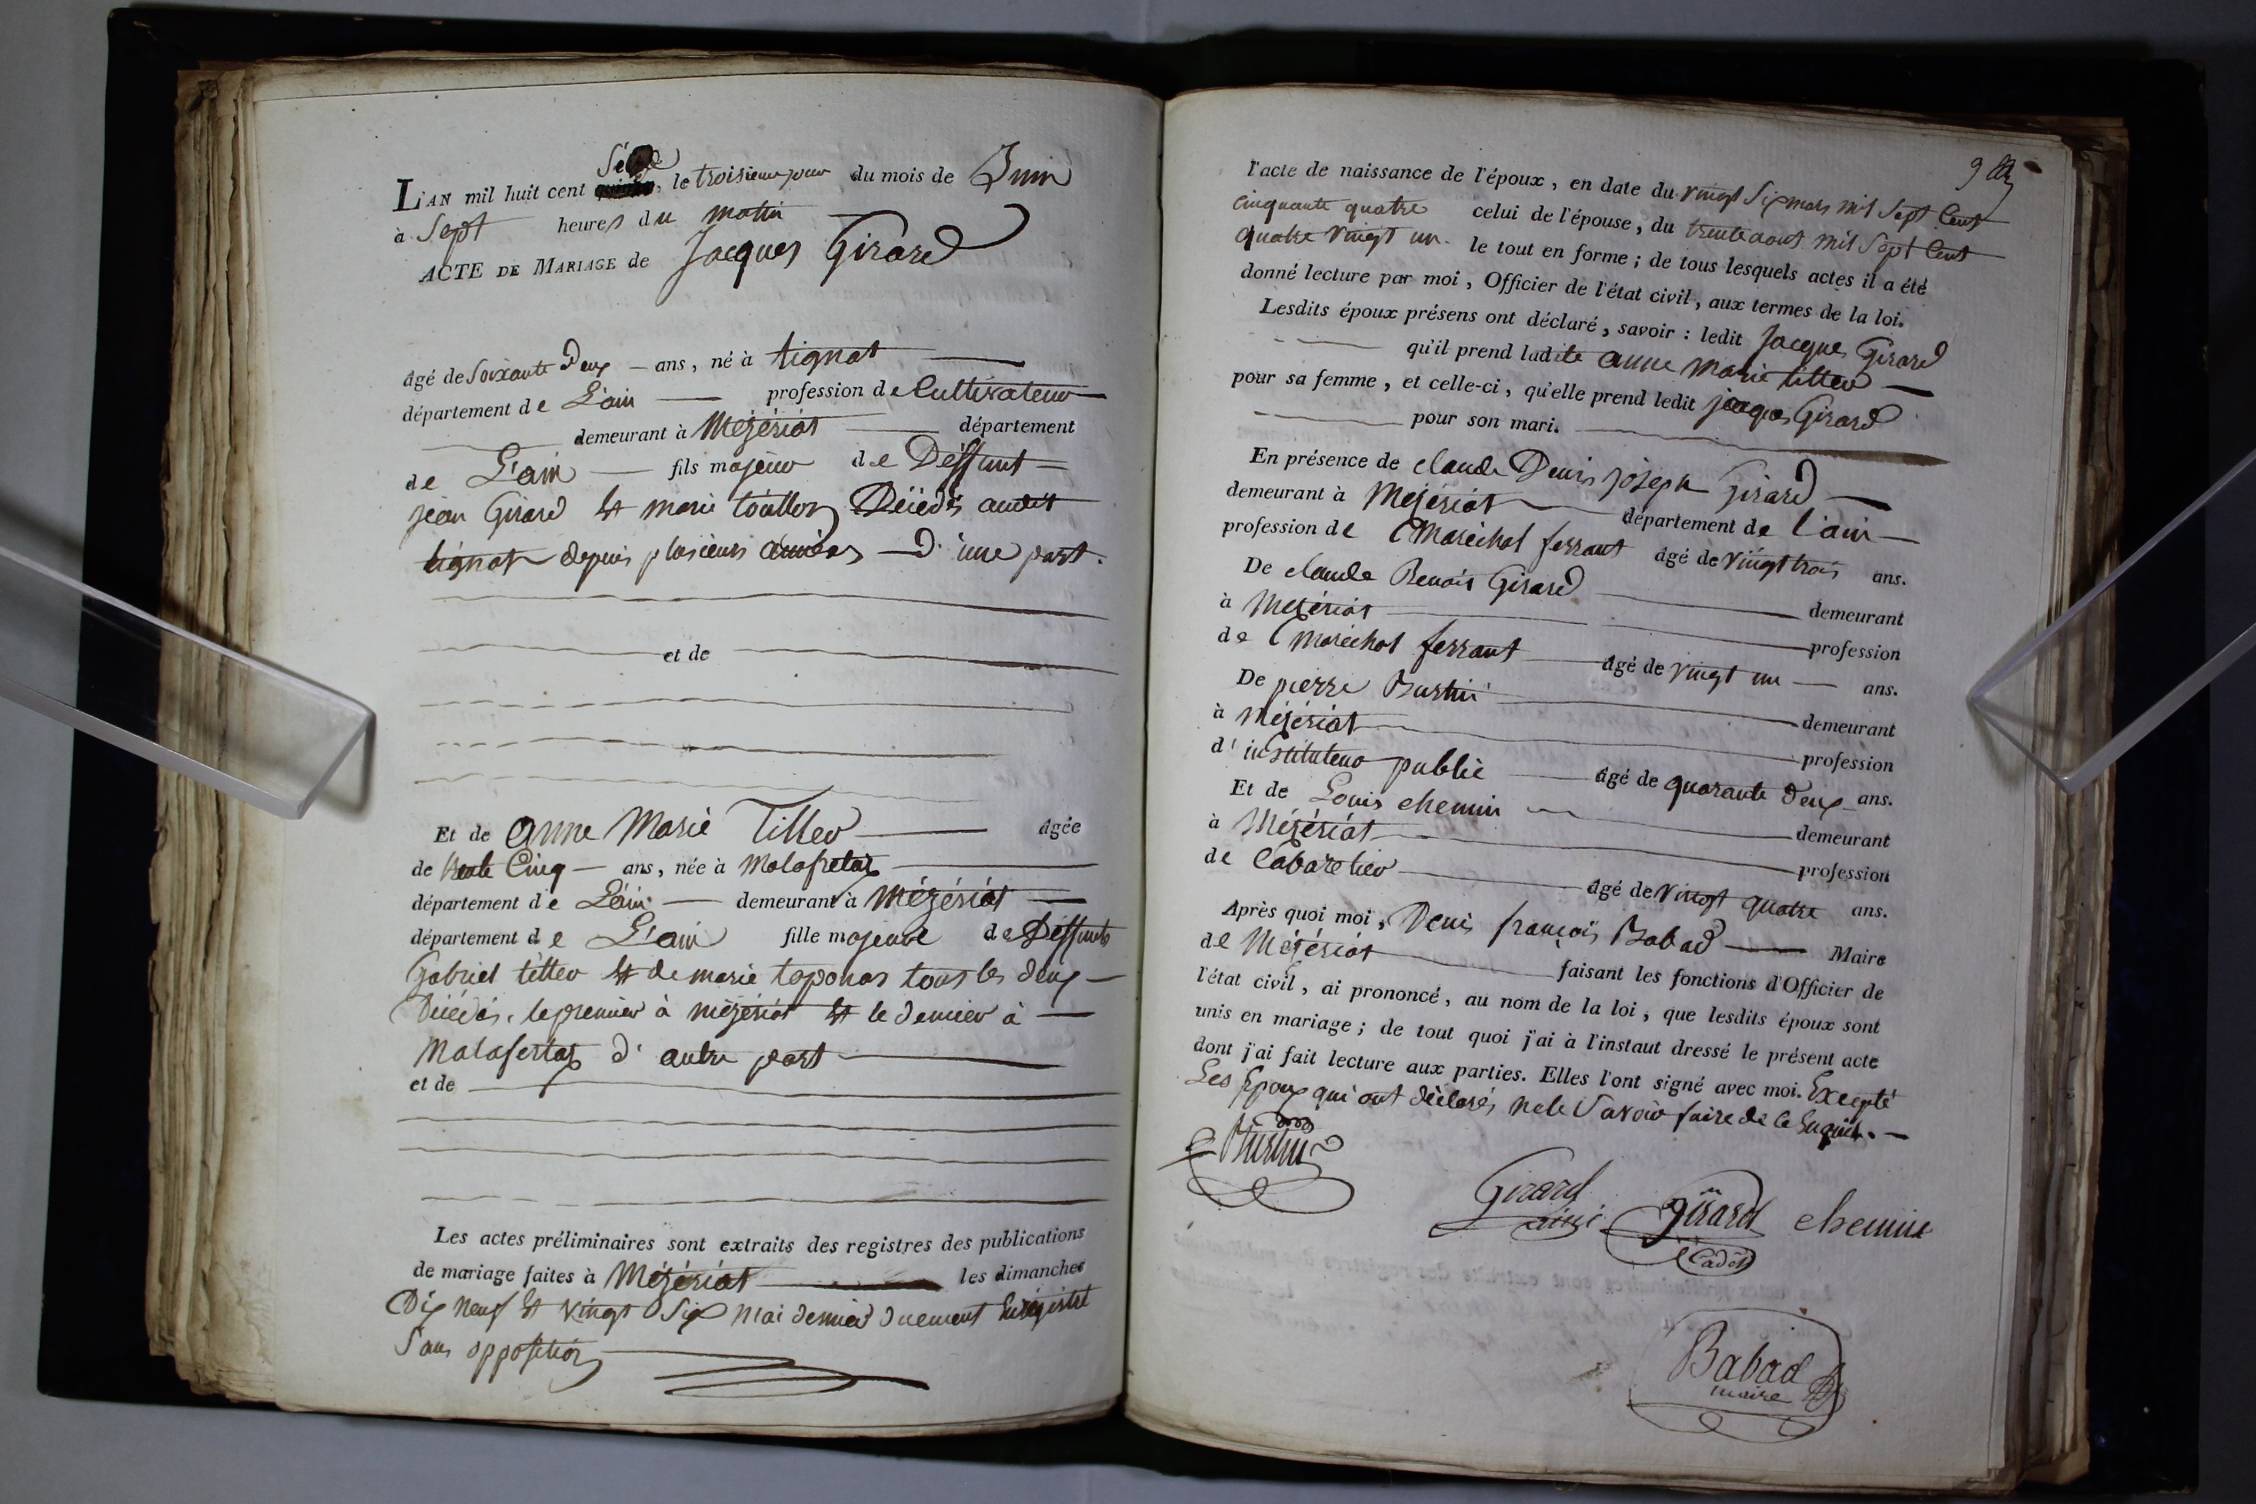 L'AN mil huit cent le troisieme jour du mois de Juin
à Sept heures du matin
ACTE DE MARIAGE de Jacques Girard
âgé de Soixante Deux ans, né à tignat
département de L'ain profession de Cultivateur
demeurant à Mézériat département
de L'ain fils majeur de Deffunt
jean Girard Et marie Décédés audit
tignat depuis plusieurs années D'une part.
et de
Et de anne Marie Tiller âgée
de trente Cinq ans, née à Malafretaz
département de L'ain demeurant à Mézériat
département de L'ain fille majeure de Deffunts
Gabriel tiller Et de marie toponas tous les deux
Décédés, le premier à mézériat Et le dernier à
Malafertaz d'autre part
et de
Les actes préliminaires sont extraits des registres des publications
de mariage faites à Mézériat les dimanches
Dix Neuf Et vingt Six Mai dernier duement Enregistré
Sans opposition
9
l'acte de naissance de l'époux, en date du vingt Six mars mil Sept Cent
cinquante quatre celui de l'épouse, du trente aout mil Sept Cent
quatre vingt un. le tout en forme; de tous lesquels actes il a été
donné lecture par moi, Officier de l'état civil, aux termes de la loi.
Lesdits époux présens ont déclaré, savoir: ledit Jacques Girard
qu'il prend ladite anne marie tiller
pour sa femme, et celle-ci, qu'elle prend ledit jacques Girard
pour son mari.
En présence de claude Denis joseph Girard
demeurant à Mézériat département de l'ain
profession de Maréchal ferrant âgé de vingt trois ans.
De claude Benoit Girard demeurant
à Mézériat profession
de Maréchal ferrant âgé de vingt un ans.
De pierre Burtin demeurant
à Mézériat profession
d'instituteur public âgé de quarante deux ans.
Et de Louis chemin demeurant
à Mézériat profession
de Cabaretier âgé de vingt quatre ans.
Après quoi moi, Denis françois Babad Maire
de Mézériat faisant les fonctions d'Officier de
l'état civil, ai prononcé, au nom de la loi, que lesdits époux sont
unis en mariage; de tout quoi j'ai à l'instant dressé le présent acte
dont j'ai fait lecture aux parties. Elles l'ont signé avec moi. Excepté
Les Epoux qui ont déclarés ne le Savoir faire de ce Enquis.
Burtin
Girard ainé Girard Cadet chemin
Babad
maire